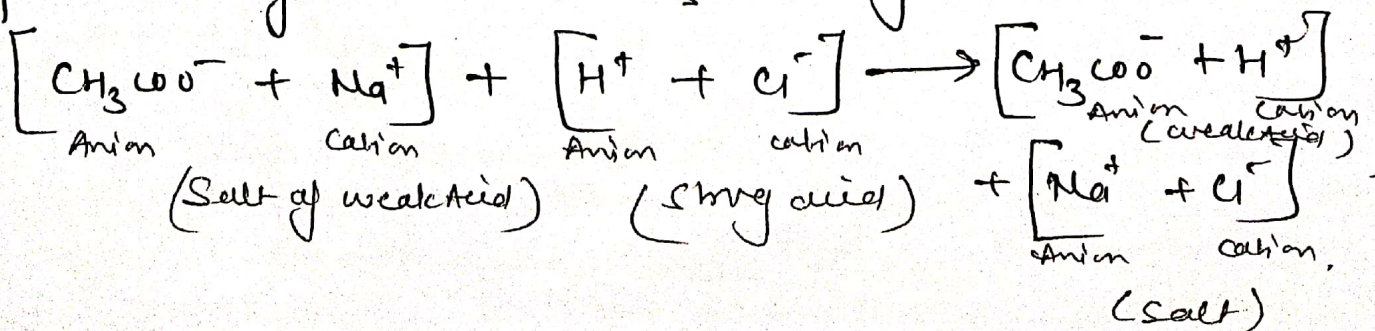 [CH₃COO⁻ + Na⁺] + [H⁺ + Cl⁻] ⟶ [CH₃COO⁻ + H⁺]
Anion Cation Anion cation Anion Cation
(Salt of weak Acid) (Strong acid) (weak Acid)
+ [Na⁺ + Cl⁻]
Anion cation.
(Salt)